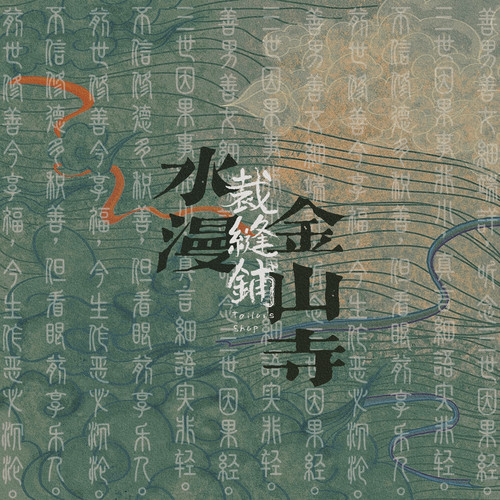 水漫
金山寺
裁縫鋪
tailors
shop
善男善女細
三世因果事
不信修德多积善，但看眼前享乐人。
前世修善今享福，今生作恶必沉沦。
善男善女細
三世因果經。
三世因果事
細語实非轻。
善男善女細
三世因果經。
三世因果事
言細語实非轻。
不信修德多积善，但看眼前享乐人。
前世修善今享福，今生作恶必沉沦。
不信修德多积善，但看眼前享乐人。
前世修善今享福，今生作恶必沉沦。